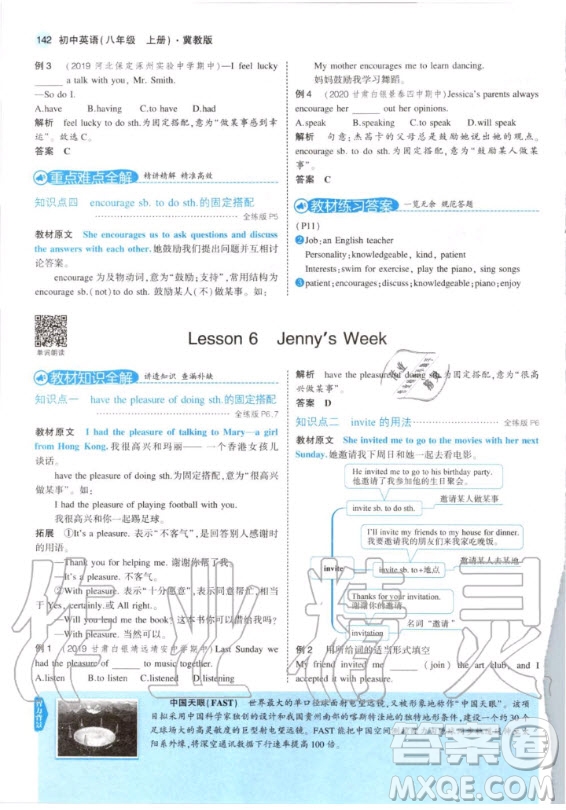 142 初中英语(八年级 上册)·冀教版
例 3 (2019 河北保定涿州实验中学期中)—I feel lucky
______ a talk with you, Mr. Smith.
—So do I.
A.have B.having C.to have D.had
解析 feel lucky to do sth.为固定搭配,意为“做某事感到幸
运”。故选 C。
答案 C
重点难点全解 精讲精解 精准高效
知识点四 encourage sb. to do sth.的固定搭配
全练版 P5
教材原文 She encourages us to ask questions and discuss
the answers with each other.她鼓励我们提出问题并互相讨
论答案。
encourage 为及物动词,意为“鼓励;支持”,常用结构为
encourage sb.(not)to do sth. 鼓励某人(不)做某事。如:
My mother encourages me to learn dancing.
妈妈鼓励我学习舞蹈。
例 4 (2020 甘肃白银景泰四中期中)Jessica's parents always
encourage her ______ out her opinions.
A.speak B.speaking C.to speak D.will speak
解析 句意:杰茜卡的父母总是鼓励她说出她的观点。
encourage sb. to do sth.为固定搭配,意为“鼓励某人做某
事”。故选 C。
答案 C
教材练习答案 一览无余 规范答题
(P11)
❷Job:an English teacher
Personality:knowledgeable, kind, patient
Interests:swim for exercise, play the piano, sing songs
❸patient;encourages;discuss;knowledgeable;piano
单词朗读
Lesson 6 Jenny's Week
教材知识全解 讲透知识 查漏补缺
知识点一 have the pleasure of doing sth.的固定搭配
全练版 P6、7
教材原文 I had the pleasure of talking to Mary—a girl
from Hong Kong.我很高兴和玛丽——一个香港女孩儿
谈话。
have the pleasure of doing sth.为固定搭配,意为“很高兴
做某事”。如:
I had the pleasure of playing football with you.
我很高兴和你们一起踢足球。
拓展 ①It's a pleasure. 表示“不客气”,是回答别人感谢时
的用语。
—Thank you for helping me. 谢谢你帮我。
—It's a pleasure. 不客气。
②With pleasure. 表示“十分愿意”,表示同意做某事,相当
于 Yes, certainly.或 All right.。
—Will you lend me the book? 这本书你可以借给我吗?
—With pleasure. 当然可以。
例 1 (2019 甘肃白银靖远靖安中学期中)Last Sunday we
had the pleasure of ______ to him.
A.listen B.listens C.listened D.listening
解析 have the pleasure of doing sth.为固定搭配,意为“很高
兴做某事”。
答案 D
知识点二 invite 的用法
全练版 P6
教材原文 She invited me to go to the movies with her next
Sunday.她邀请我下周日和她一起去看电影。
He invited me to go to his birthday party.
他邀请了我去他的生日聚会。
invite sb. to do sth.
邀请某人做某事
I'll invite my friends to my house for dinner.
我要邀请我的朋友们来我家吃晚饭。
invite
invite sb. to+地点
邀请某人去某地
Thanks for your invitation.
谢谢你的邀请。
invitation
名词“邀请”
例 2 用所给词的适当形式填空
My friend invited me ______ (join) the art club, and I
accepted it with pleasure.
中国天眼(FAST) 世界最大的单口径球面射电望远镜,又被形象地称为“中国天眼”。该
项目拟采用中国科学家独创的设计和我国贵州南部的喀斯特洼地的独特地形条件,建设一个约 30 个
足球场大的高灵敏度的巨型射电望远镜。FAST能把中国空间
阳系外缘,将深空通讯数据下行速率提高 100 倍。
作业精灵
答案圈
MXQE.COM